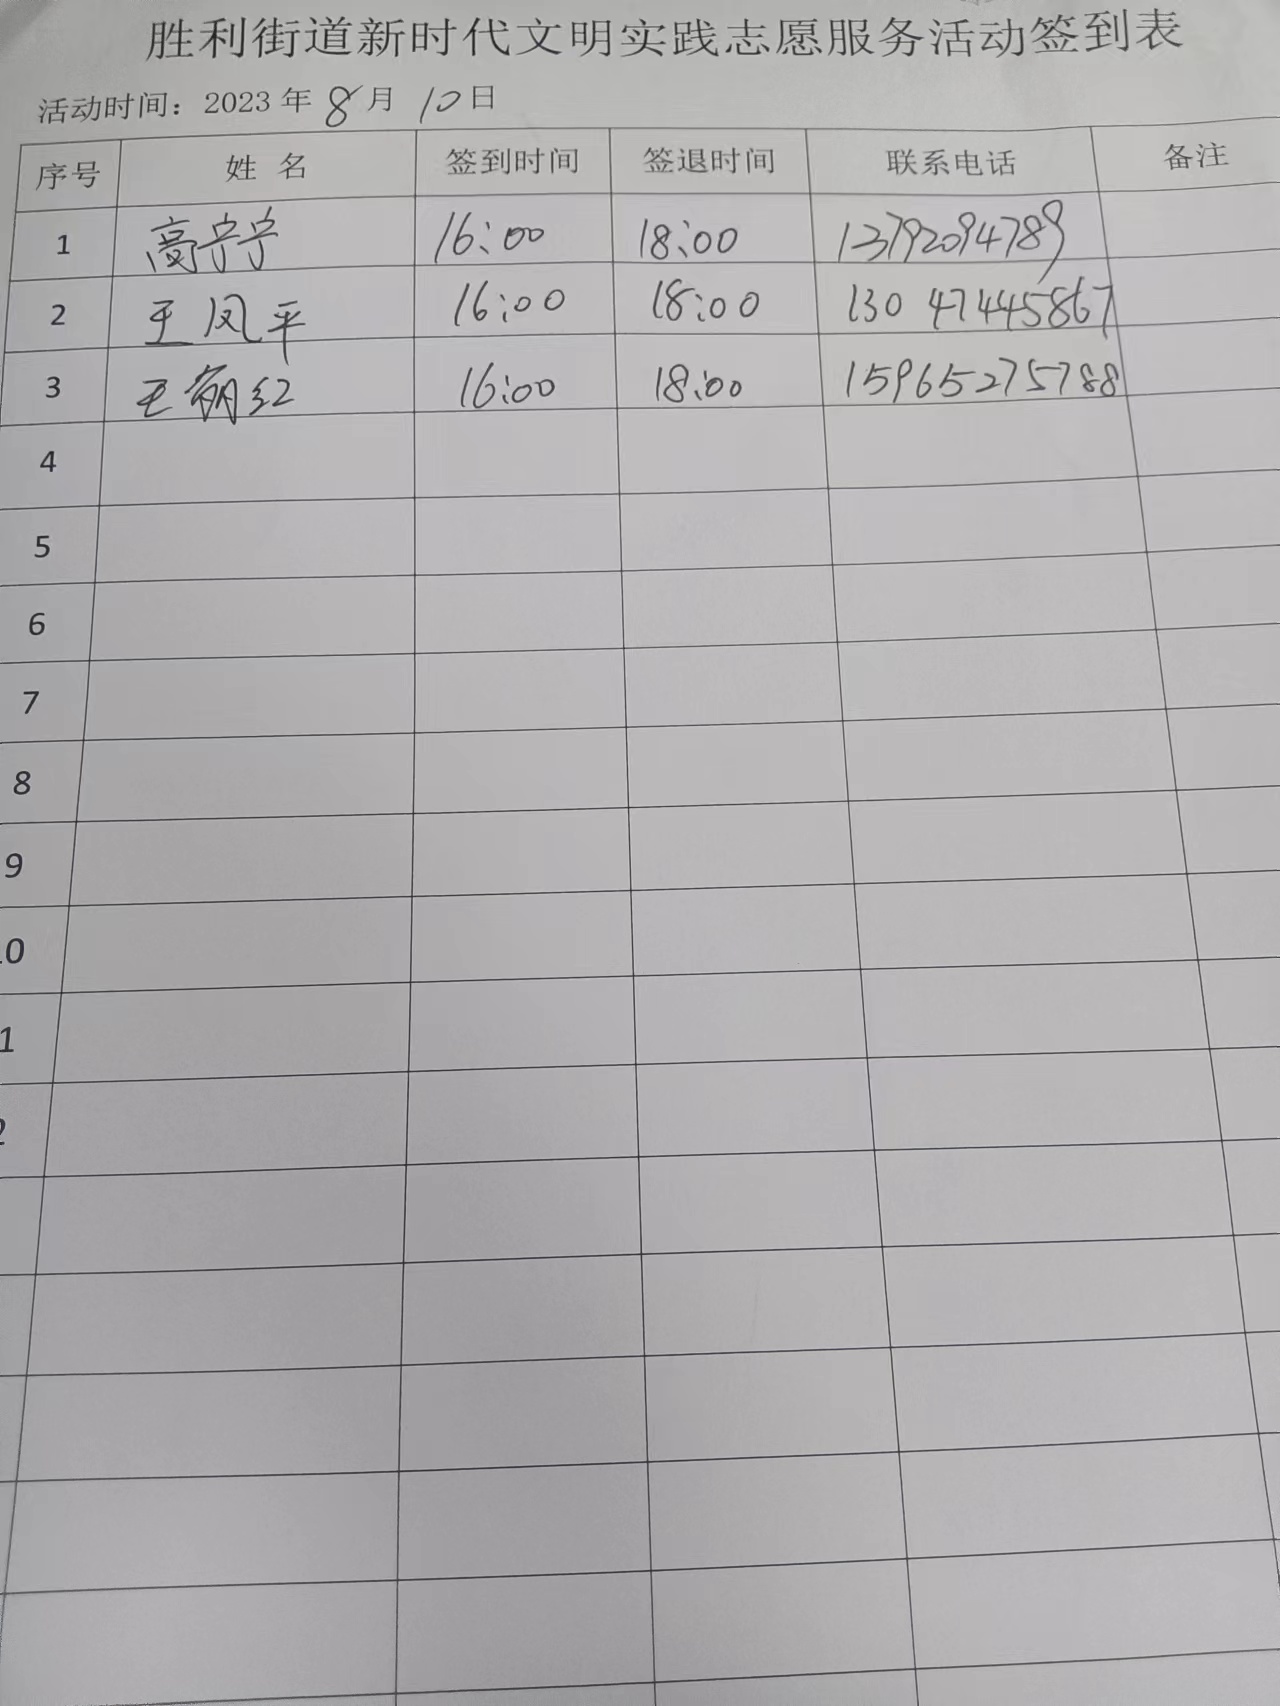 胜利街道新时代文明实践志愿服务活动签到表
活动时间：2023年8月10日
序号 姓名 签到时间 签退时间 联系电话 备注
1 高宁宁 16:00 18:00 13792094789
2 王凤平 16:00 18:00 13047445867
3 王 红 16:00 18:00 15965275788
4
5
6
7
8
9
10
11
2